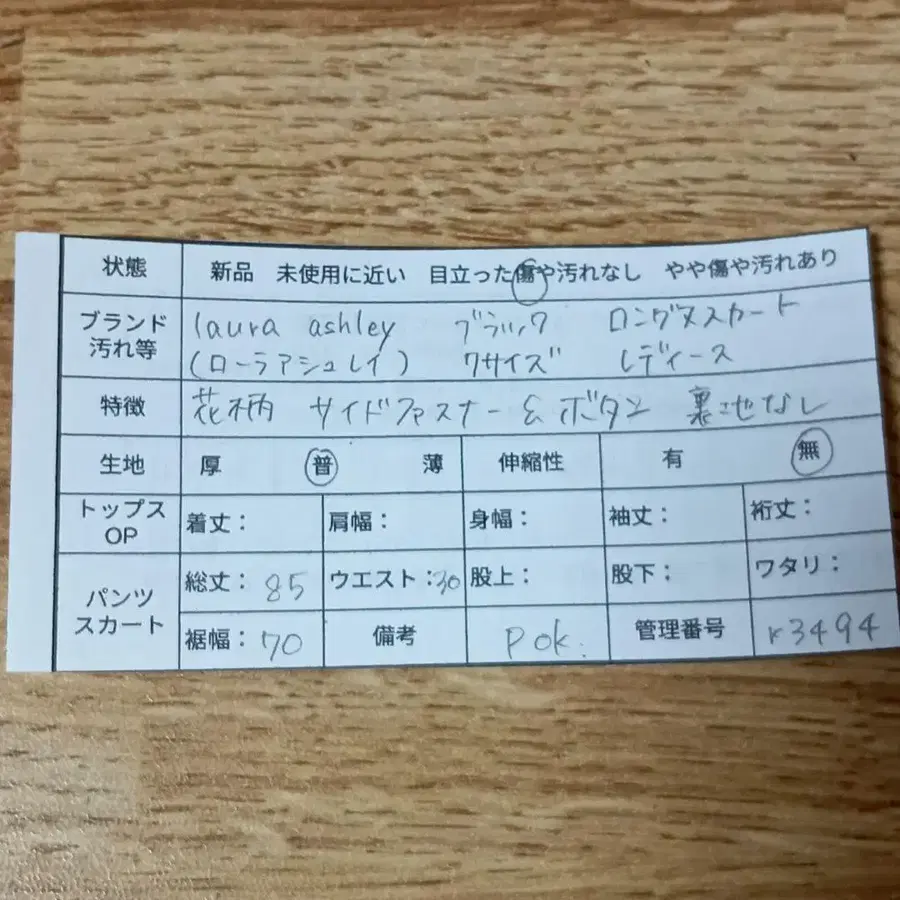 状態 新品 未使用に近い 目立った傷や汚れなし やや傷や汚れあり
ブランド 汚れ等 laura ashley ブラック ロングスカート
(ローラアシュレイ) 7サイズ レディース
特徴 花柄 サイドファスナー & ボタン 裏地なし
生地 厚 普 薄 伸縮性 有 無
トップス OP 着丈: 肩幅: 身幅: 袖丈: 裄丈:
パンツ スカート 総丈: 85 ウエスト: 30 股上: 股下: ワタリ:
裾幅: 70 備考 pok. 管理番号 r3494